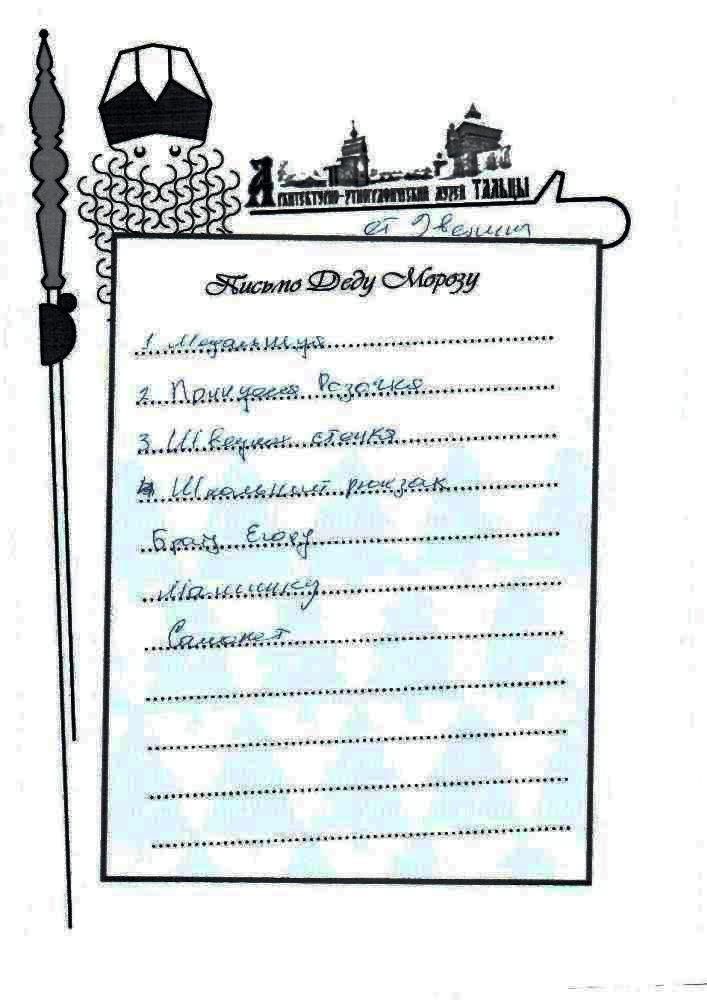 Архитектурно-этнографический музей ТАЛЬЦЫ
от Эвелины
Письмо Деду Морозу
1
2 Принцесса Розочка
3 Шведская стенка
4 Школьный рюкзак
Брату Егору
Машинку
Самокат